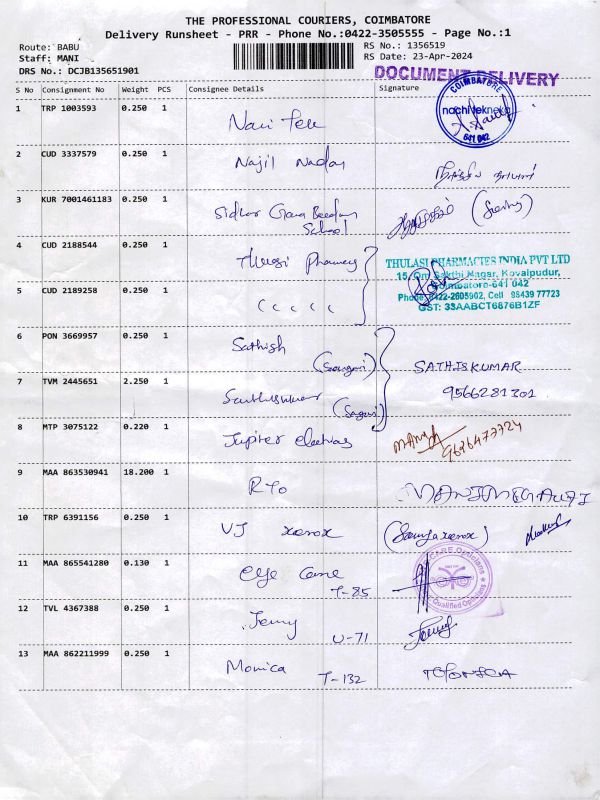 THE PROFESSIONAL COURIERS, COIMBATORE
Delivery Runsheet - PRR - Phone No.:0422-3505555 - Page No.:1
Route: BABU
RS No.: 1356519
Staff: MANI
RS Date: 23-Apr-2024
DRS No.: DCJB135651901
DOCUMENT DELIVERY
S No Consignment No Weight PCS Consignee Details Signature
COIMBATORE
641 042
1 TRP 1003593 0.250 1
2 CUD 3337579 0.250 1 Najil
3 KUR 7001461183 0.250 1
School
4 CUD 2188544 0.250 1 Thulasi Pharmacy
THULASI PHARMACIES INDIA PVT LTD
15, Om Sakthi Nagar, Kovaipudur,
Coimbatore-641 042
Phone: 0422-2605902, Cell: 98439 77723
GST: 33AABCT6876B1ZF
5 CUD 2189258 0.250 1
6 PON 3669957 0.250 1 Sathish
SATHISKUMAR
7 TVM 2445651 2.250 1 9566281301
8 MTP 3075122 0.220 1 Jupiter
9 MAA 863530941 18.200 1 RTO
10 TRP 6391156 0.250 1 VJ xerox (Sowmya xerox)
11 MAA 865541280 0.130 1 eye Care
T-85
CARE Opticians
Qualified Opticians
12 TVL 4367388 0.250 1 Jenny
U-71
Jenny
13 MAA 862211999 0.250 1 Monica
T-132